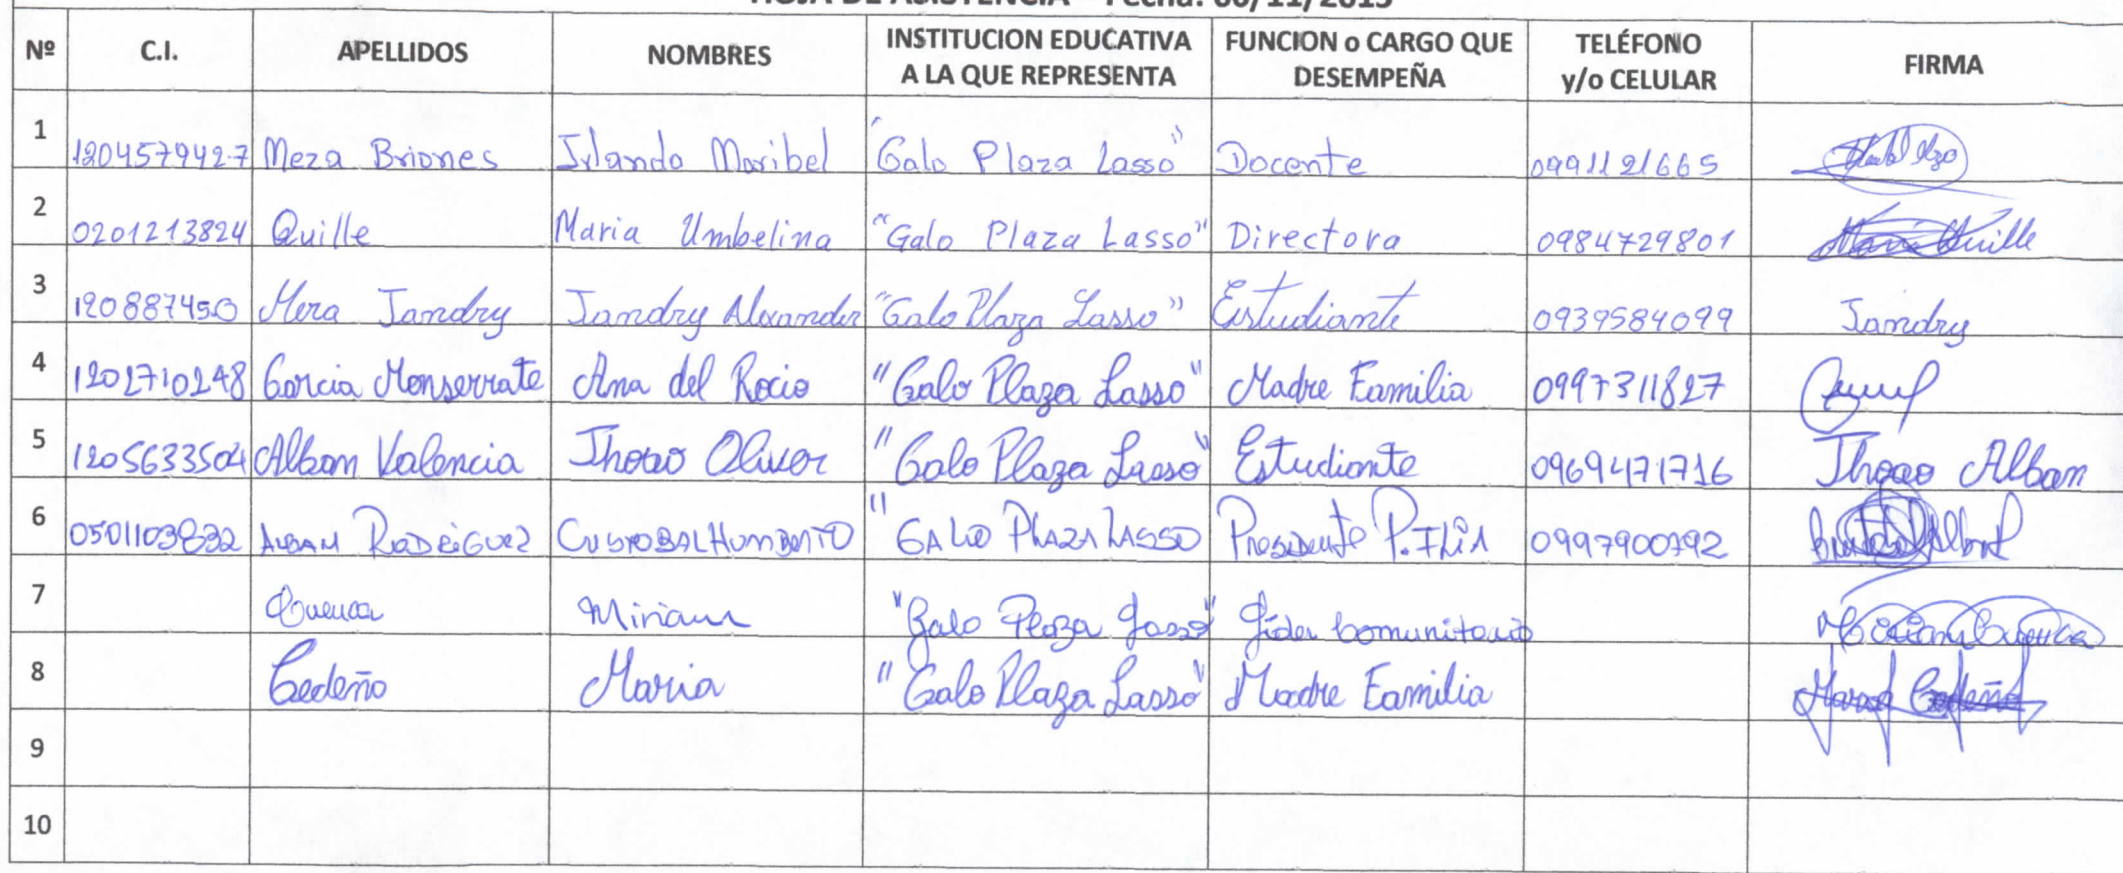 HOJA DE ASISTENCIA – Fecha: 06/11/2015
Nº C.I. APELLIDOS NOMBRES INSTITUCION EDUCATIVA A LA QUE REPRESENTA FUNCION o CARGO QUE DESEMPEÑA TELÉFONO y/o CELULAR FIRMA
1 1204579427 Meza Briones Irlanda Maribel "Galo Plaza Lasso" Docente 0991121665
2 0201213824 Quille Maria Umbelina "Galo Plaza Lasso" Directora 0984729801 Maria Quille
3 120887450 Mera Jandry Jandry Alexander "Galo Plaza Lasso" Estudiante 0939584099 Jandry
4 1202710248 Garcia Monserrate Ana del Rocio "Galo Plaza Lasso" Madre Familia 0997311827
5 1205633504 Alban Valencia Jhorao Oliver "Galo Plaza Lasso" Estudiante 0969471716 Alban
6 0501103832 ALBAN RODRIGUEZ CRISTOBAL HUMBERTO "GALO PLAZA LASSO Presidente 0997900792
7 Cuenca Miriam "Galo Plaza Lasso" Líder Comunitario Miriam Cuenca
8 Cedeño Maria "Galo Plaza Lasso" Madre Familia Maria Cedeño
9
10